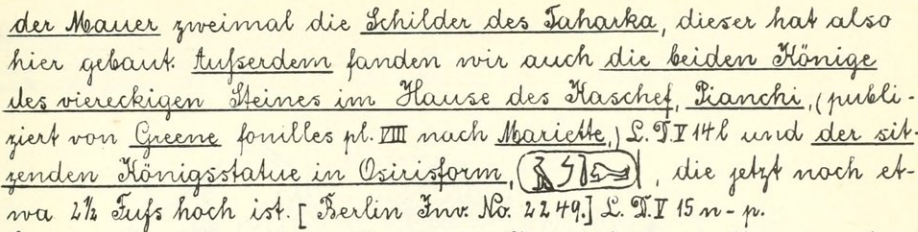 der Mauer zweimal die Schilder des Taharka, dieser hat also
hier gebaut. Aufserdem fanden wir auch die beiden Könige
des viereckigen Steines im Hause des Kaschef, Pianchi, (publi-
ziert von Greene fouilles pl. VIII nach Mariette,) L. D. V 14 l und der sit-
zenden Königsstatue in Osirisform, , die jetzt noch et-
wa 2½ Fufs hoch ist. [Berlin Inv. No. 2249.] L. D. V 15 n - p.